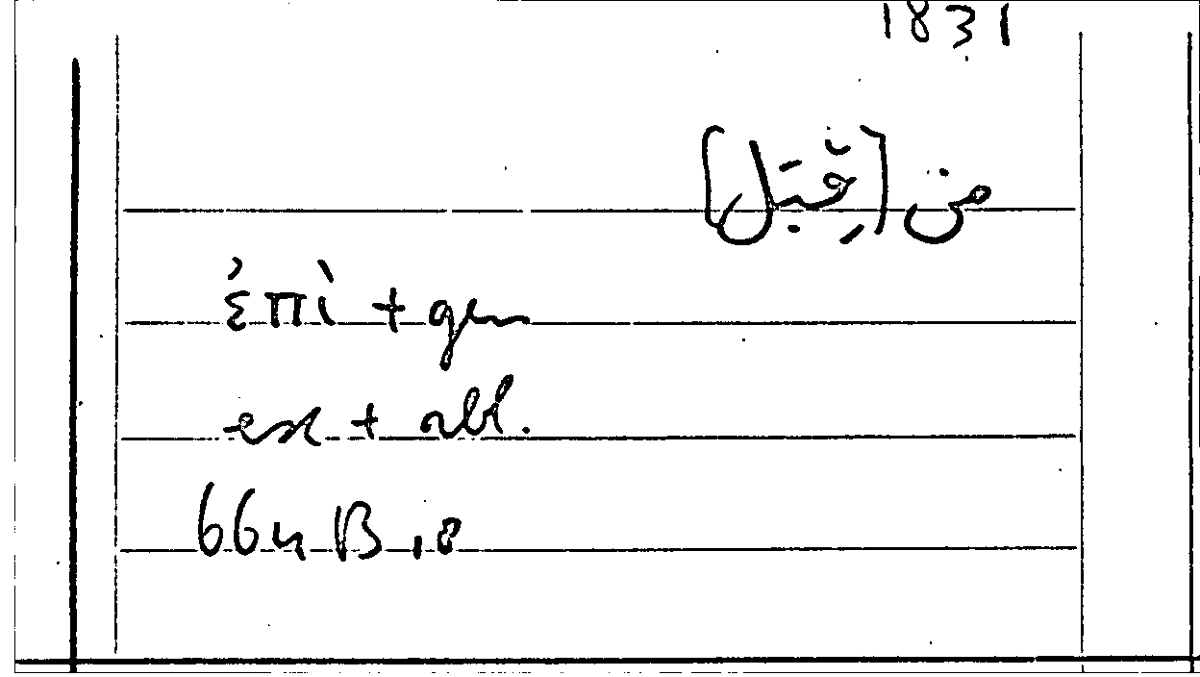 1831
من [قِبَل]
ἐπὶ + gen
ex + abl.
664 B 18